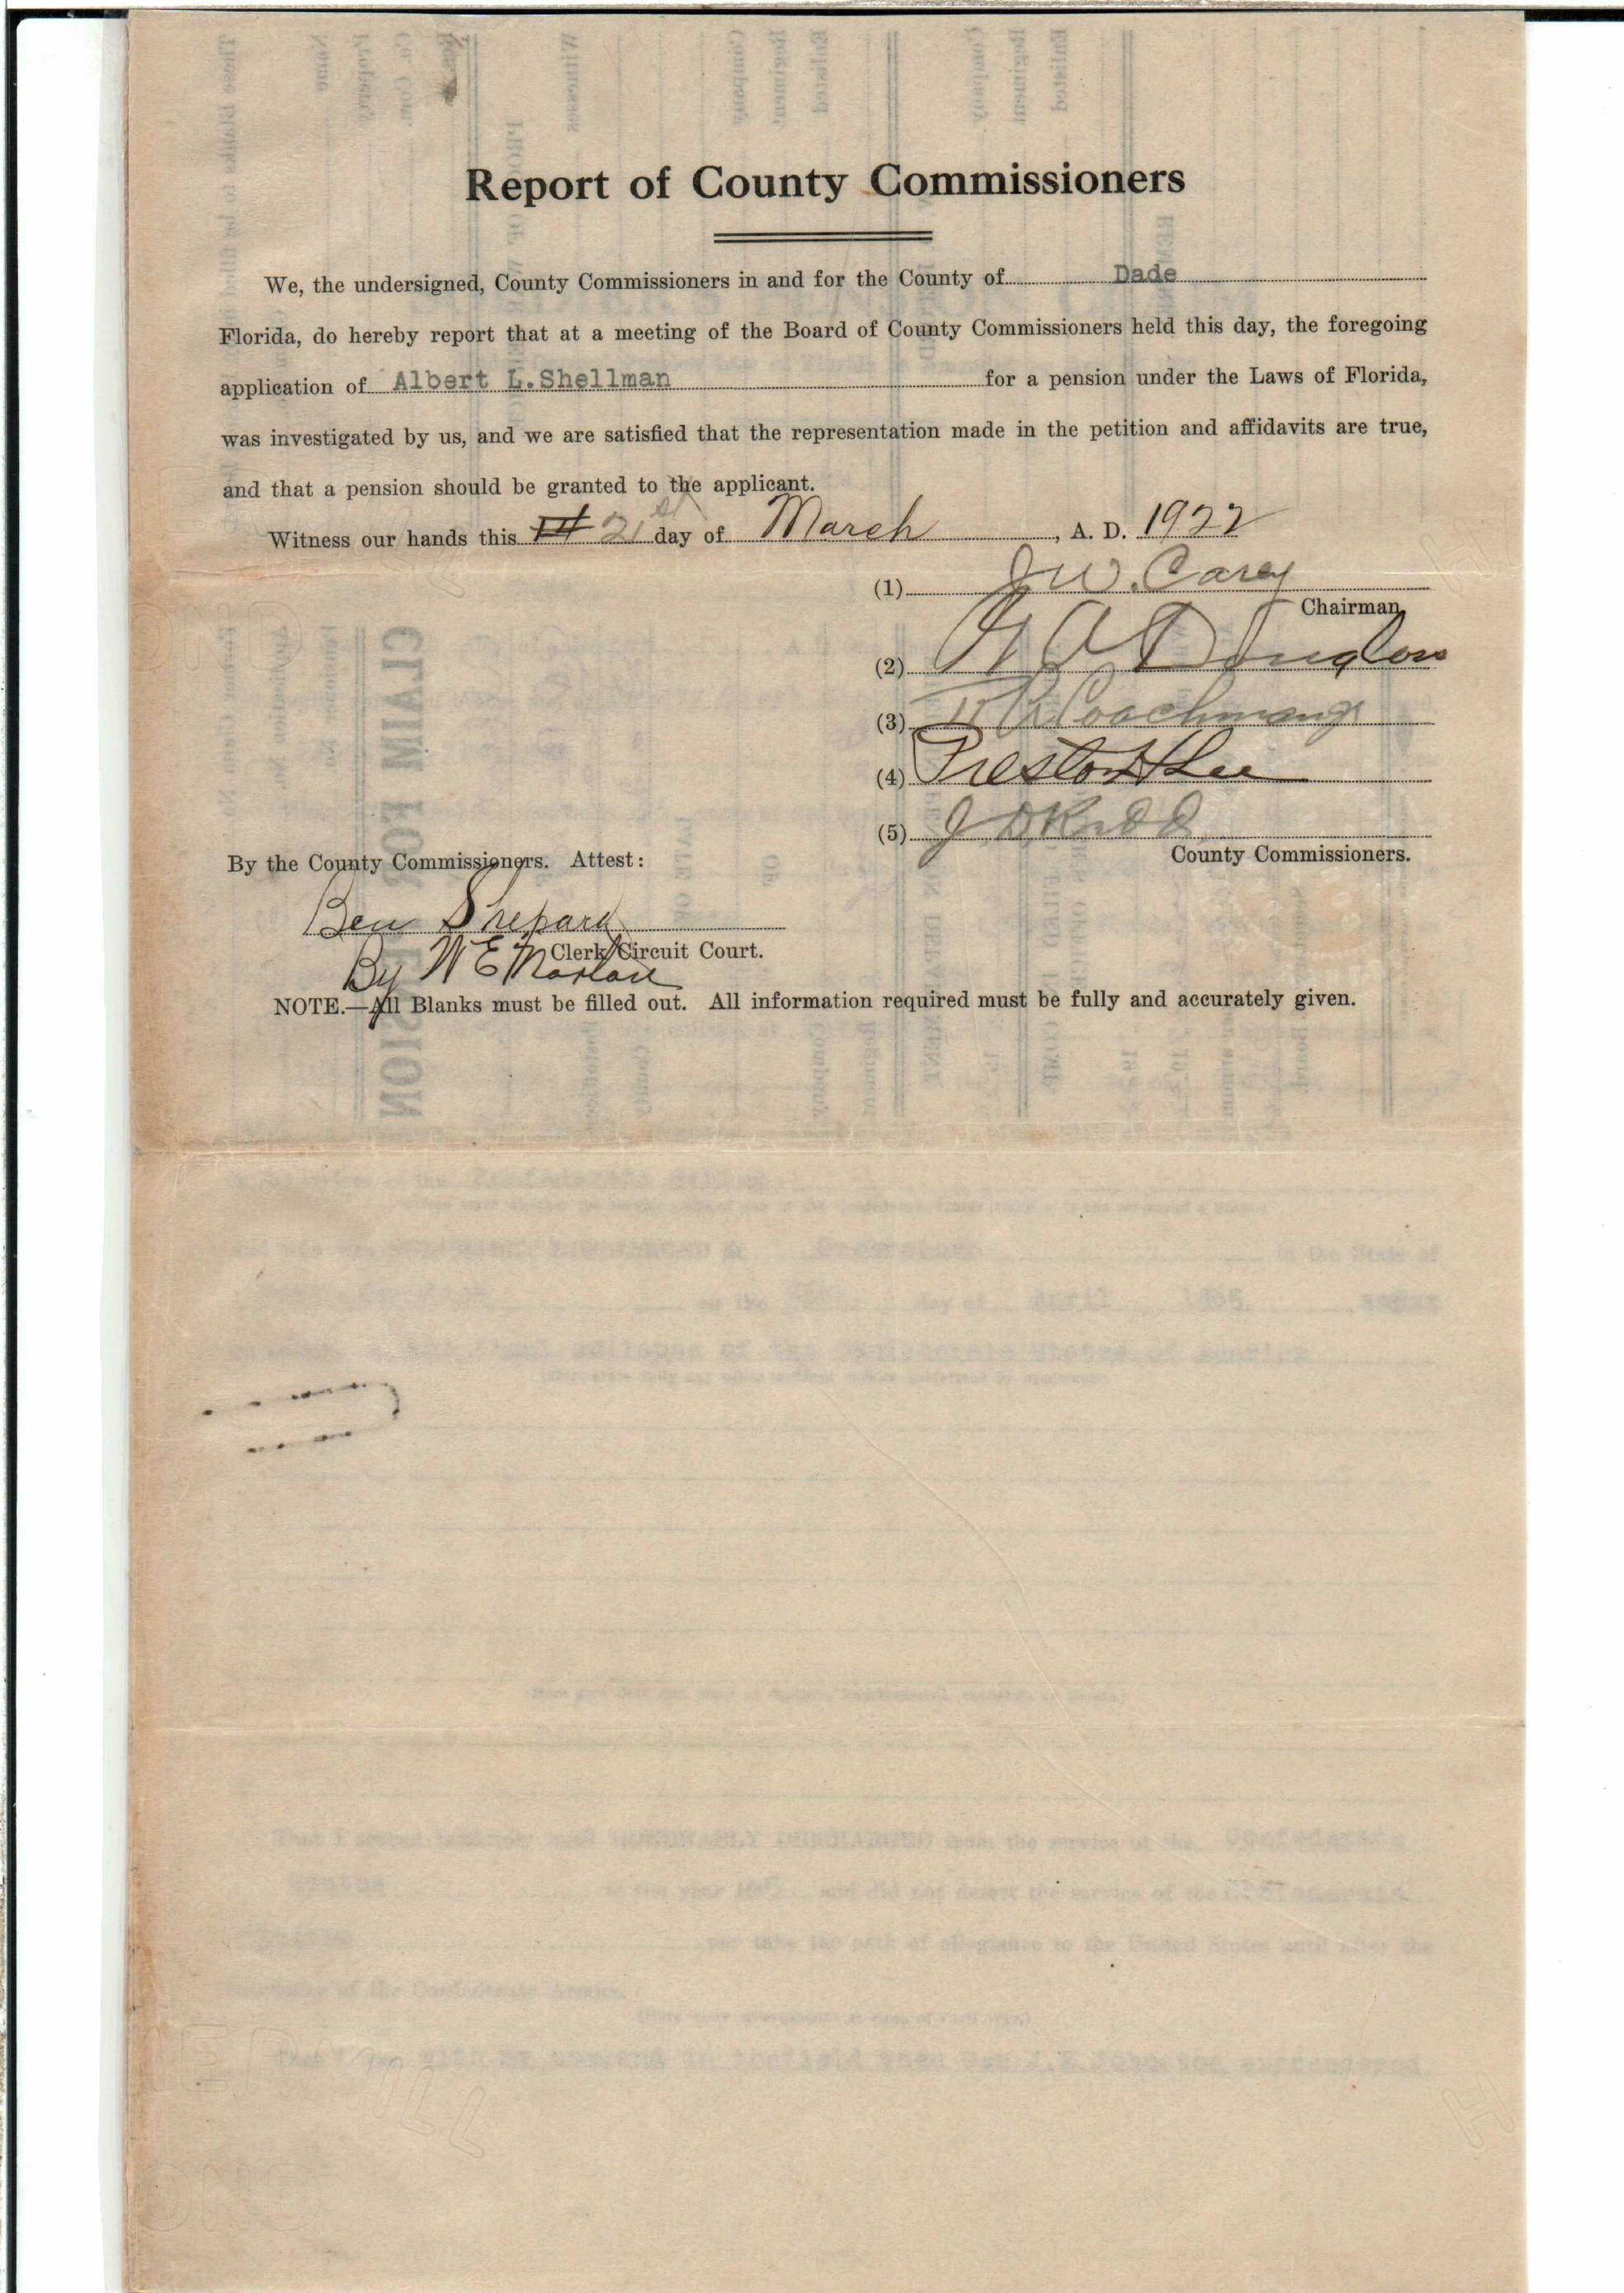 Report of County Commissioners
We, the undersigned, County Commissioners in and for the County of Dade
Florida, do hereby report that at a meeting of the Board of County Commissioners held this day, the foregoing
application of Albert L.Shellman for a pension under the Laws of Florida,
was investigated by us, and we are satisfied that the representation made in the petition and affidavits are true,
and that a pension should be granted to the applicant.
Witness our hands this 21st day of March, A. D. 1922
(1) J W. Carey
Chairman
(2) A Douglass
(3) Coachman
(4) Preston Lee
(5) J D Redd
County Commissioners.
By the County Commissioners. Attest:
Ben Shepard
Clerk Circuit Court.
By W E Norton
NOTE.—All Blanks must be filled out. All information required must be fully and accurately given.